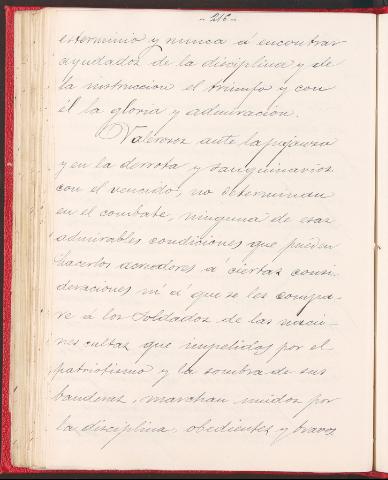 - 216 -
esterminio y nunca á encontrar
ayudados de la disciplina y de
la instruccion el triunfo y con
él la gloria y admiración.
Valerosos ante la
y en la derrota y sanguinarios
con el vencido, no determinan
en el combate, ninguna de esas
admirables condiciones que puedan
hacerlos acreedores á ciertas consi-
deraciones ni á que se les compa-
re á los Soldados de las nacio-
nes cultas que impelidos por el
patriotismo y la sombra de sus
banderas, marchan unidos por
la disciplina, obedientes y bravos